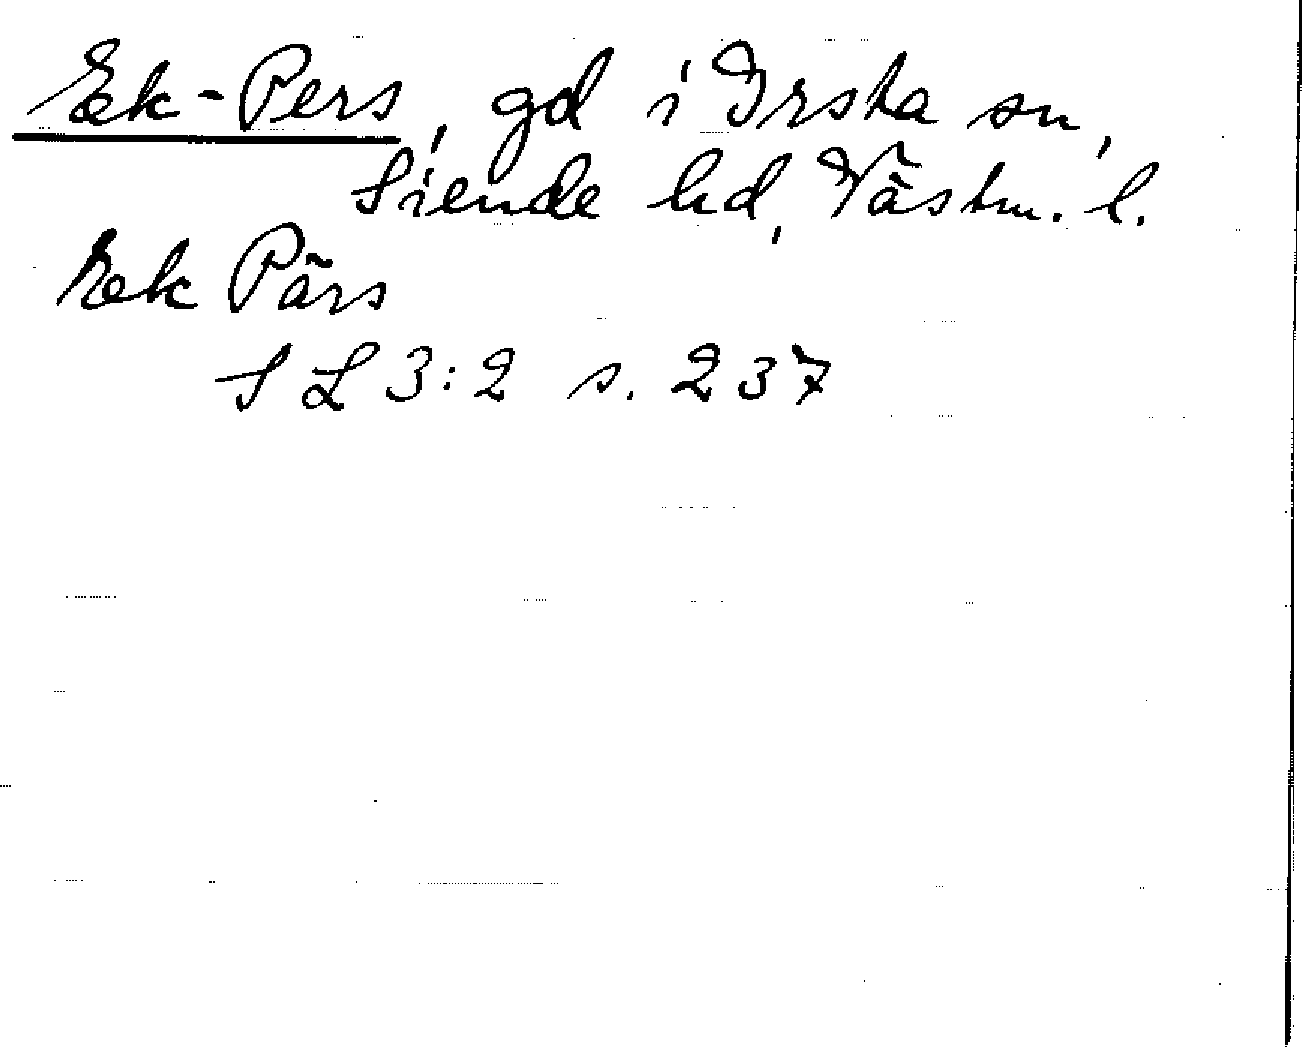 Ek-Pers, gd i Irsta sn,
Siende hd, Västm. l.
Eek Pärs
SL 3:2 s. 237